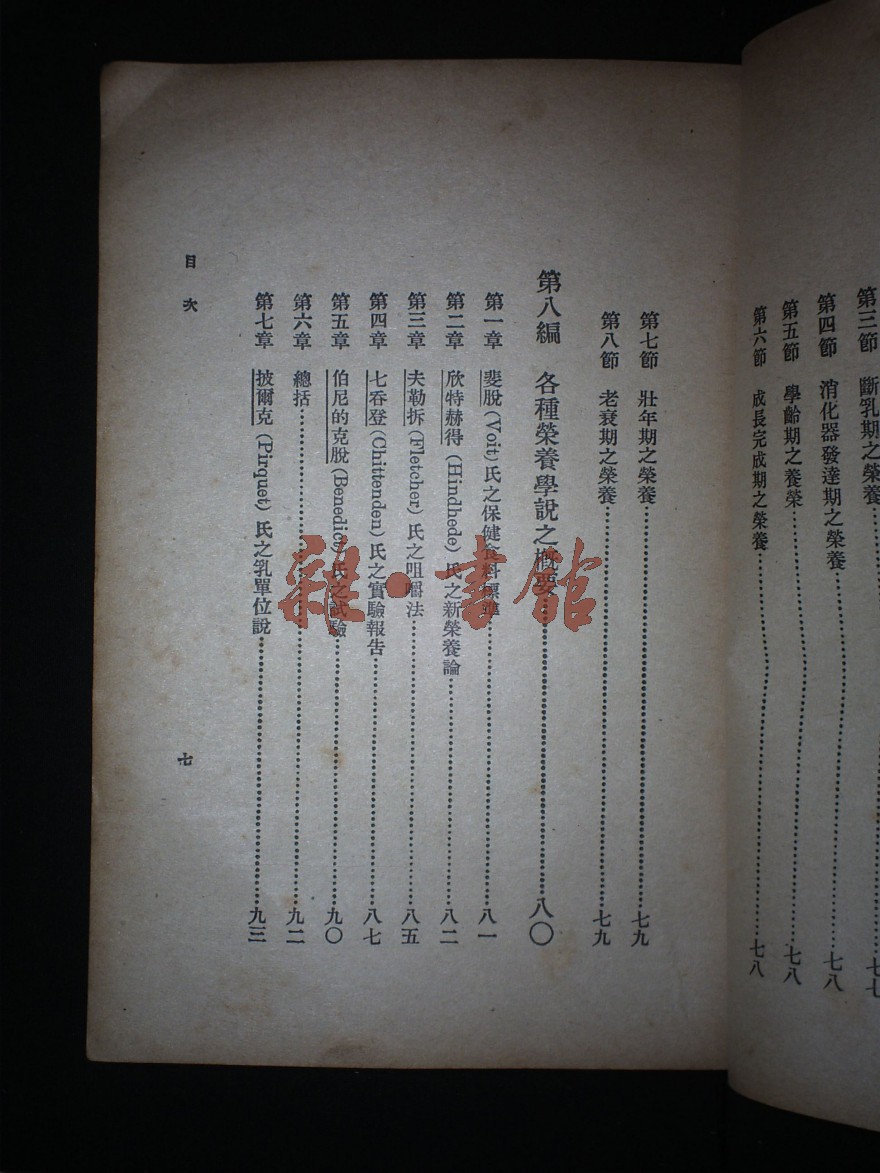 第三節 斷乳期之榮養……七七
第四節 消化器發達期之榮養……七八
第五節 學齡期之養榮……七八
第六節 成長完成期之榮養……七八
第七節 壯年期之榮養……七九
第八節 老衰期之榮養……七九
第八編 各種榮養學說之概要……八〇
第一章 斐脫(Voit)氏之保健食料標準……八一
第二章 欣特赫得(Hindhede)氏之新榮養論……八二
第三章 夫勒拆(Fletcher)氏之咀嚼法……八五
第四章 七吞登(Chittenden)氏之實驗報告……八七
第五章 伯尼的克脫(Benedict)氏之試驗……九〇
第六章 總括……九二
第七章 披爾克(Pirquet)氏之乳單位說……九三
目次
七
雜·書館